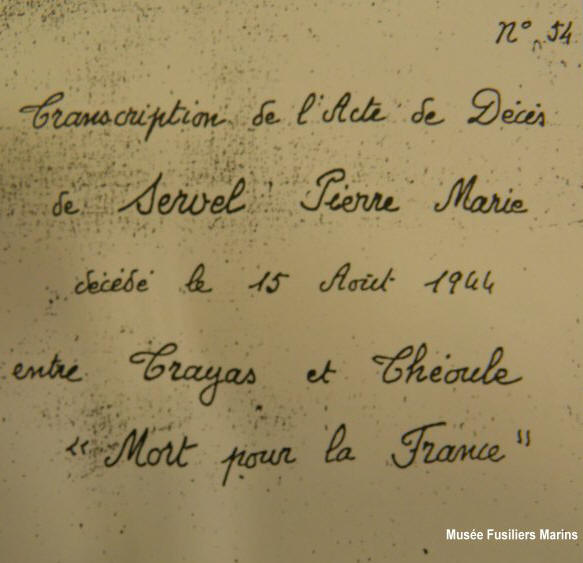 N° 54
Transcription de l'Acte de Décès
de Servel Pierre Marie
décédé le 15 Août 1944
entre Trayas et Théoule
« Mort pour la France »
Musée Fusiliers Marins